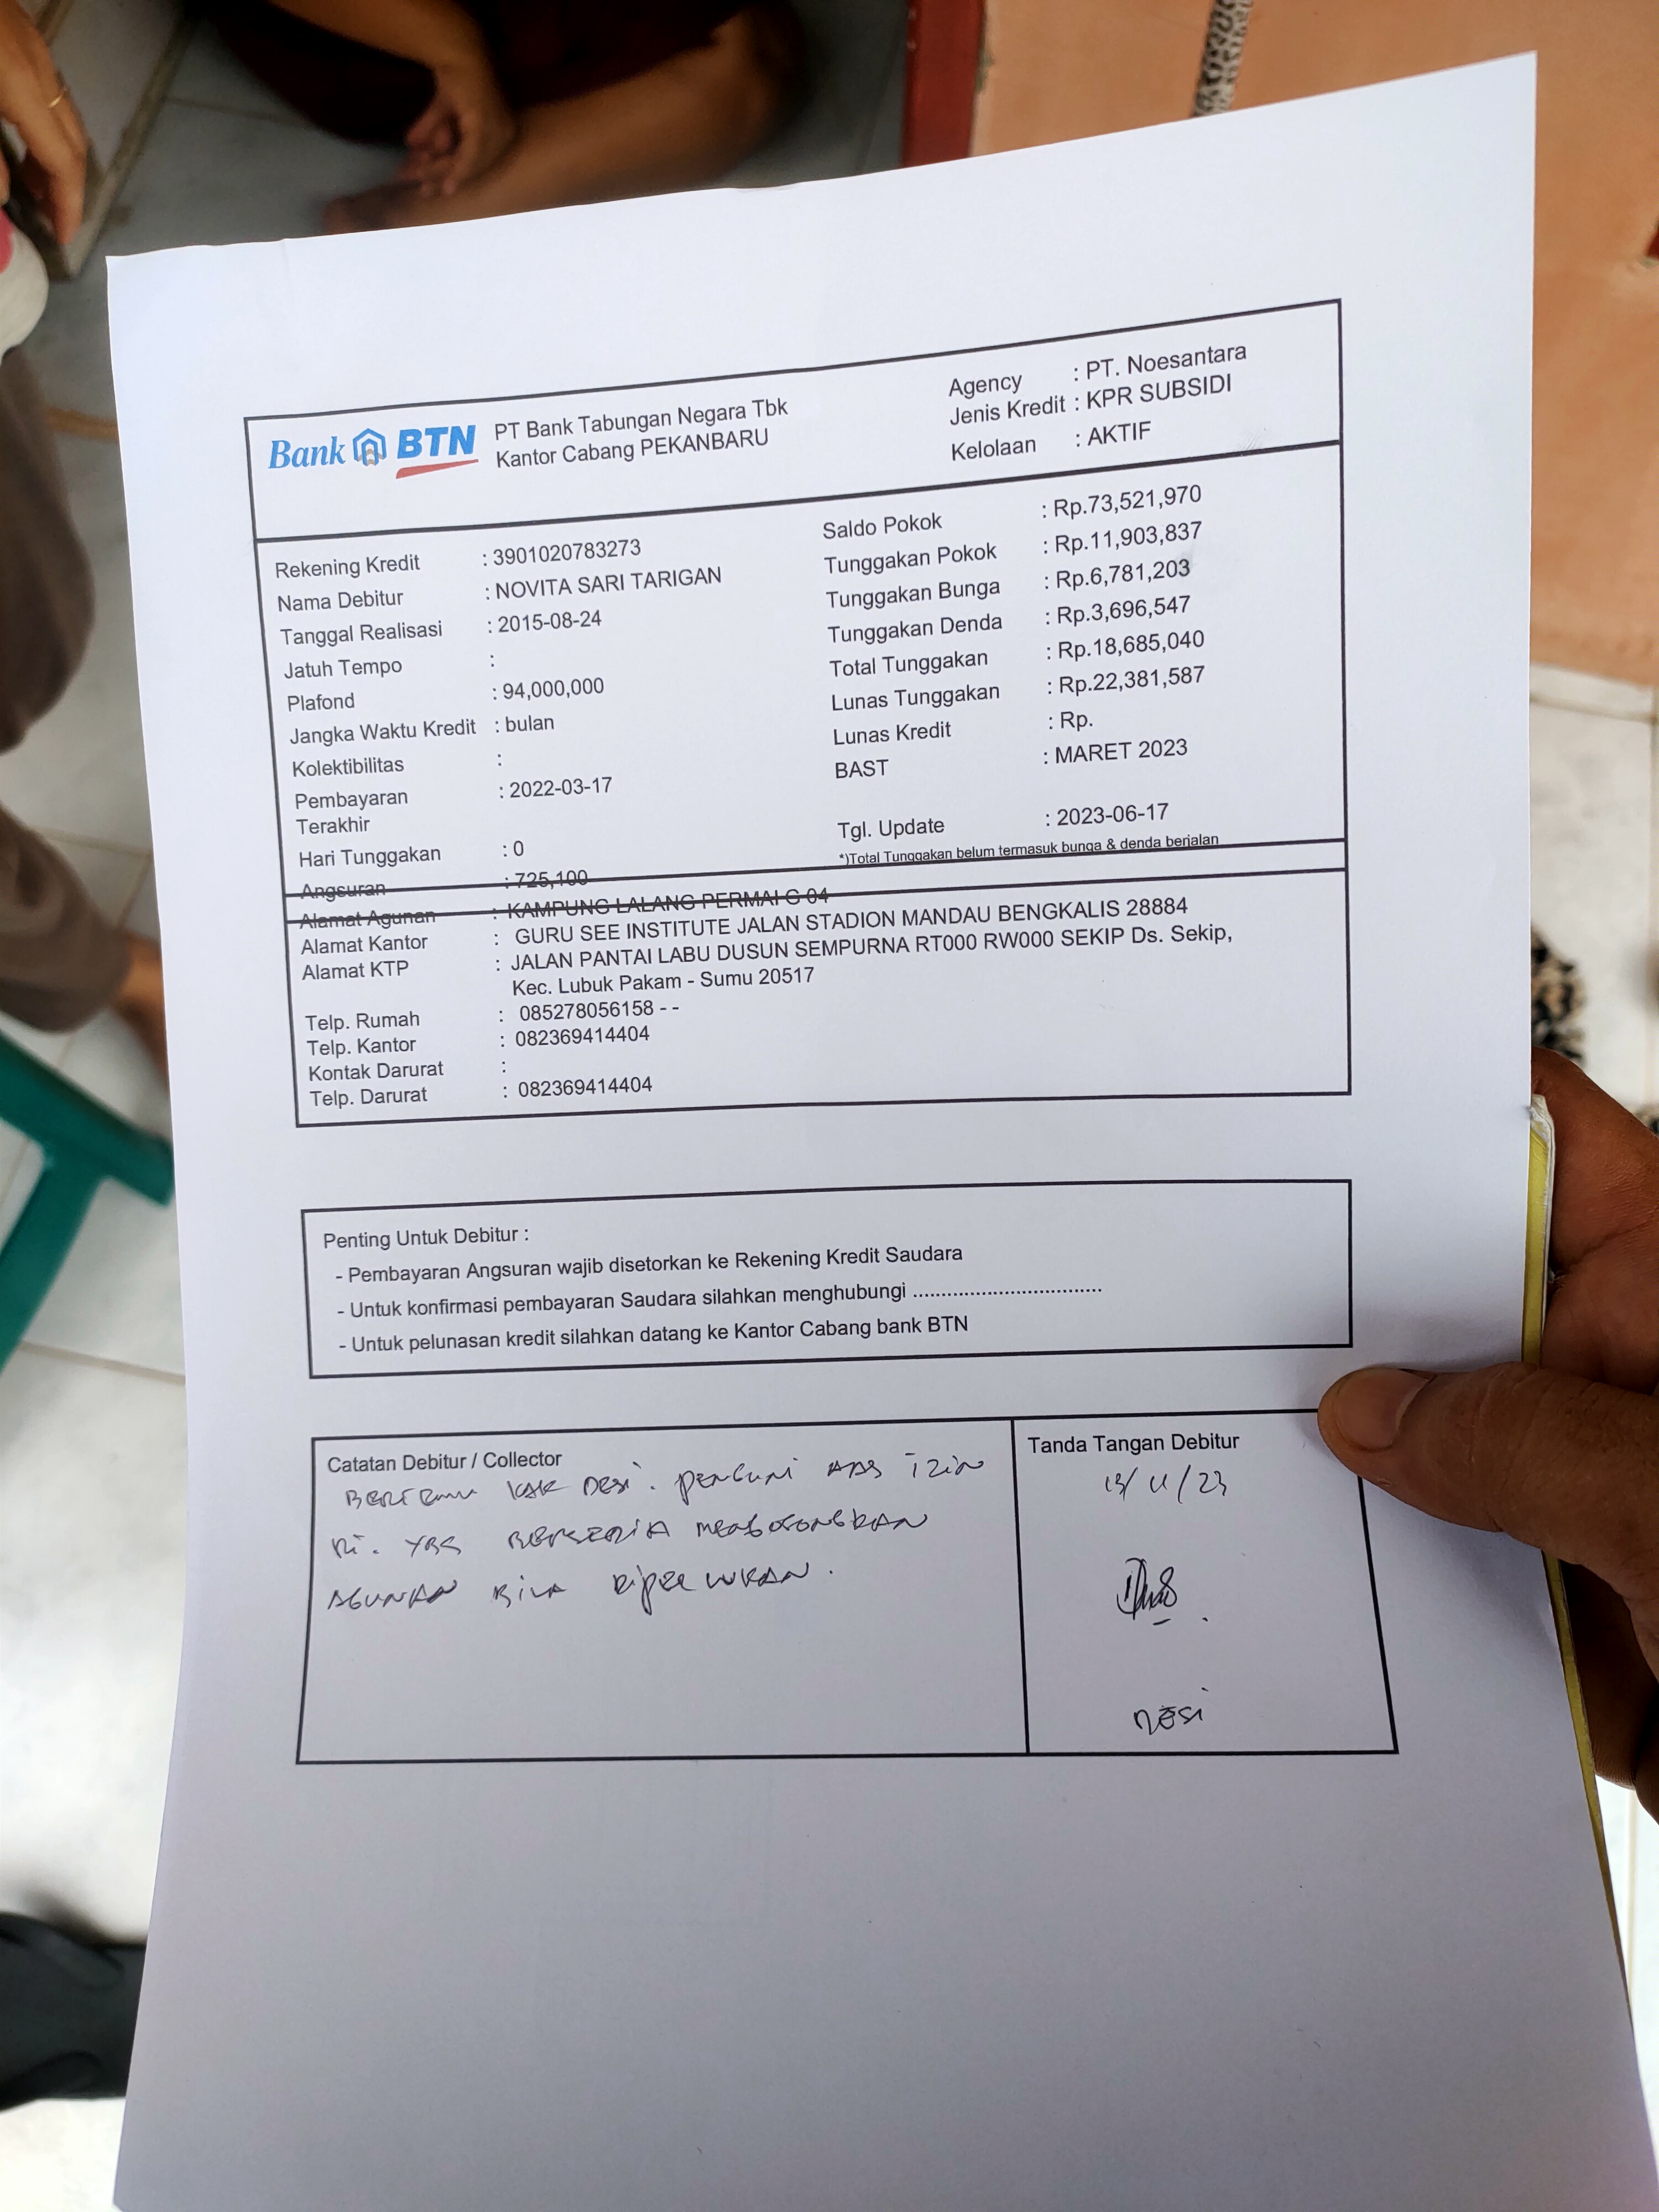 Bank BTN
PT Bank Tabungan Negara Tbk
Kantor Cabang PEKANBARU
Agency : PT. Noesantara
Jenis Kredit : KPR SUBSIDI
Kelolaan : AKTIF
Rekening Kredit : 3901020783273
Nama Debitur : NOVITA SARI TARIGAN
Tanggal Realisasi : 2015-08-24
Jatuh Tempo :
Plafond : 94,000,000
Jangka Waktu Kredit : bulan
Kolektibilitas :
Pembayaran : 2022-03-17
Terakhir
Hari Tunggakan : 0
Angsuran : 725,100
Saldo Pokok : Rp.73,521,970
Tunggakan Pokok : Rp.11,903,837
Tunggakan Bunga : Rp.6,781,203
Tunggakan Denda : Rp.3,696,547
Total Tunggakan : Rp.18,685,040
Lunas Tunggakan : Rp.22,381,587
Lunas Kredit : Rp.
BAST : MARET 2023
Tgl. Update : 2023-06-17
*)Total Tunggakan belum termasuk bunga & denda berjalan
Alamat Agunan : KAMPUNG LALANG PERMAI G 04
Alamat Kantor : GURU SEE INSTITUTE JALAN STADION MANDAU BENGKALIS 28884
Alamat KTP : JALAN PANTAI LABU DUSUN SEMPURNA RT000 RW000 SEKIP Ds. Sekip,
Kec. Lubuk Pakam - Sumu 20517
Telp. Rumah : 085278056158 - -
Telp. Kantor : 082369414404
Kontak Darurat :
Telp. Darurat : 082369414404
Penting Untuk Debitur :
- Pembayaran Angsuran wajib disetorkan ke Rekening Kredit Saudara
- Untuk konfirmasi pembayaran Saudara silahkan menghubungi ..................................
- Untuk pelunasan kredit silahkan datang ke Kantor Cabang bank BTN
Catatan Debitur / Collector
BERTEMU KAK DESI. PENGHUNI ADS IZIN
YBS BERSEDIA MENGOSONGKAN
AGUNAN BILA DIPERLUKAN.
Tanda Tangan Debitur
DESI